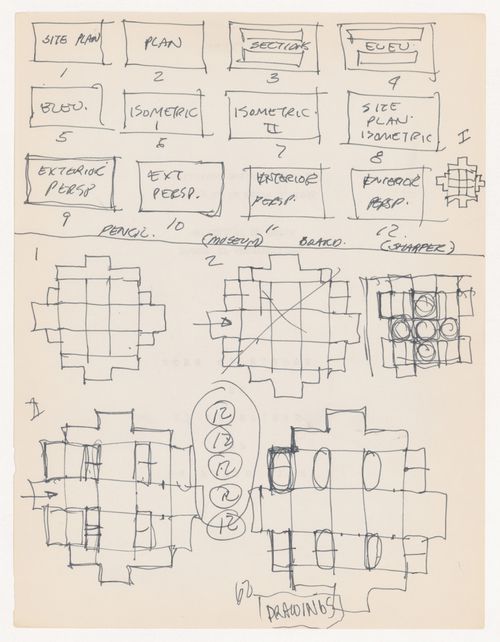 SITE PLAN PLAN SECTIONS ELEV.
1 2 3 4
ELEV. ISOMETRIC I ISOMETRIC II SITE PLAN ISOMETRIC
5 6 7 8
I
EXTERIOR PERSP. EXT PERSP. INTERIOR PERSP. INTERIOR PERSP.
9 10 11 12
PENCIL. (MUSEUM) BOARD. (SHARPER)
1 2
II
12
12
12
12
12
60 DRAWINGS